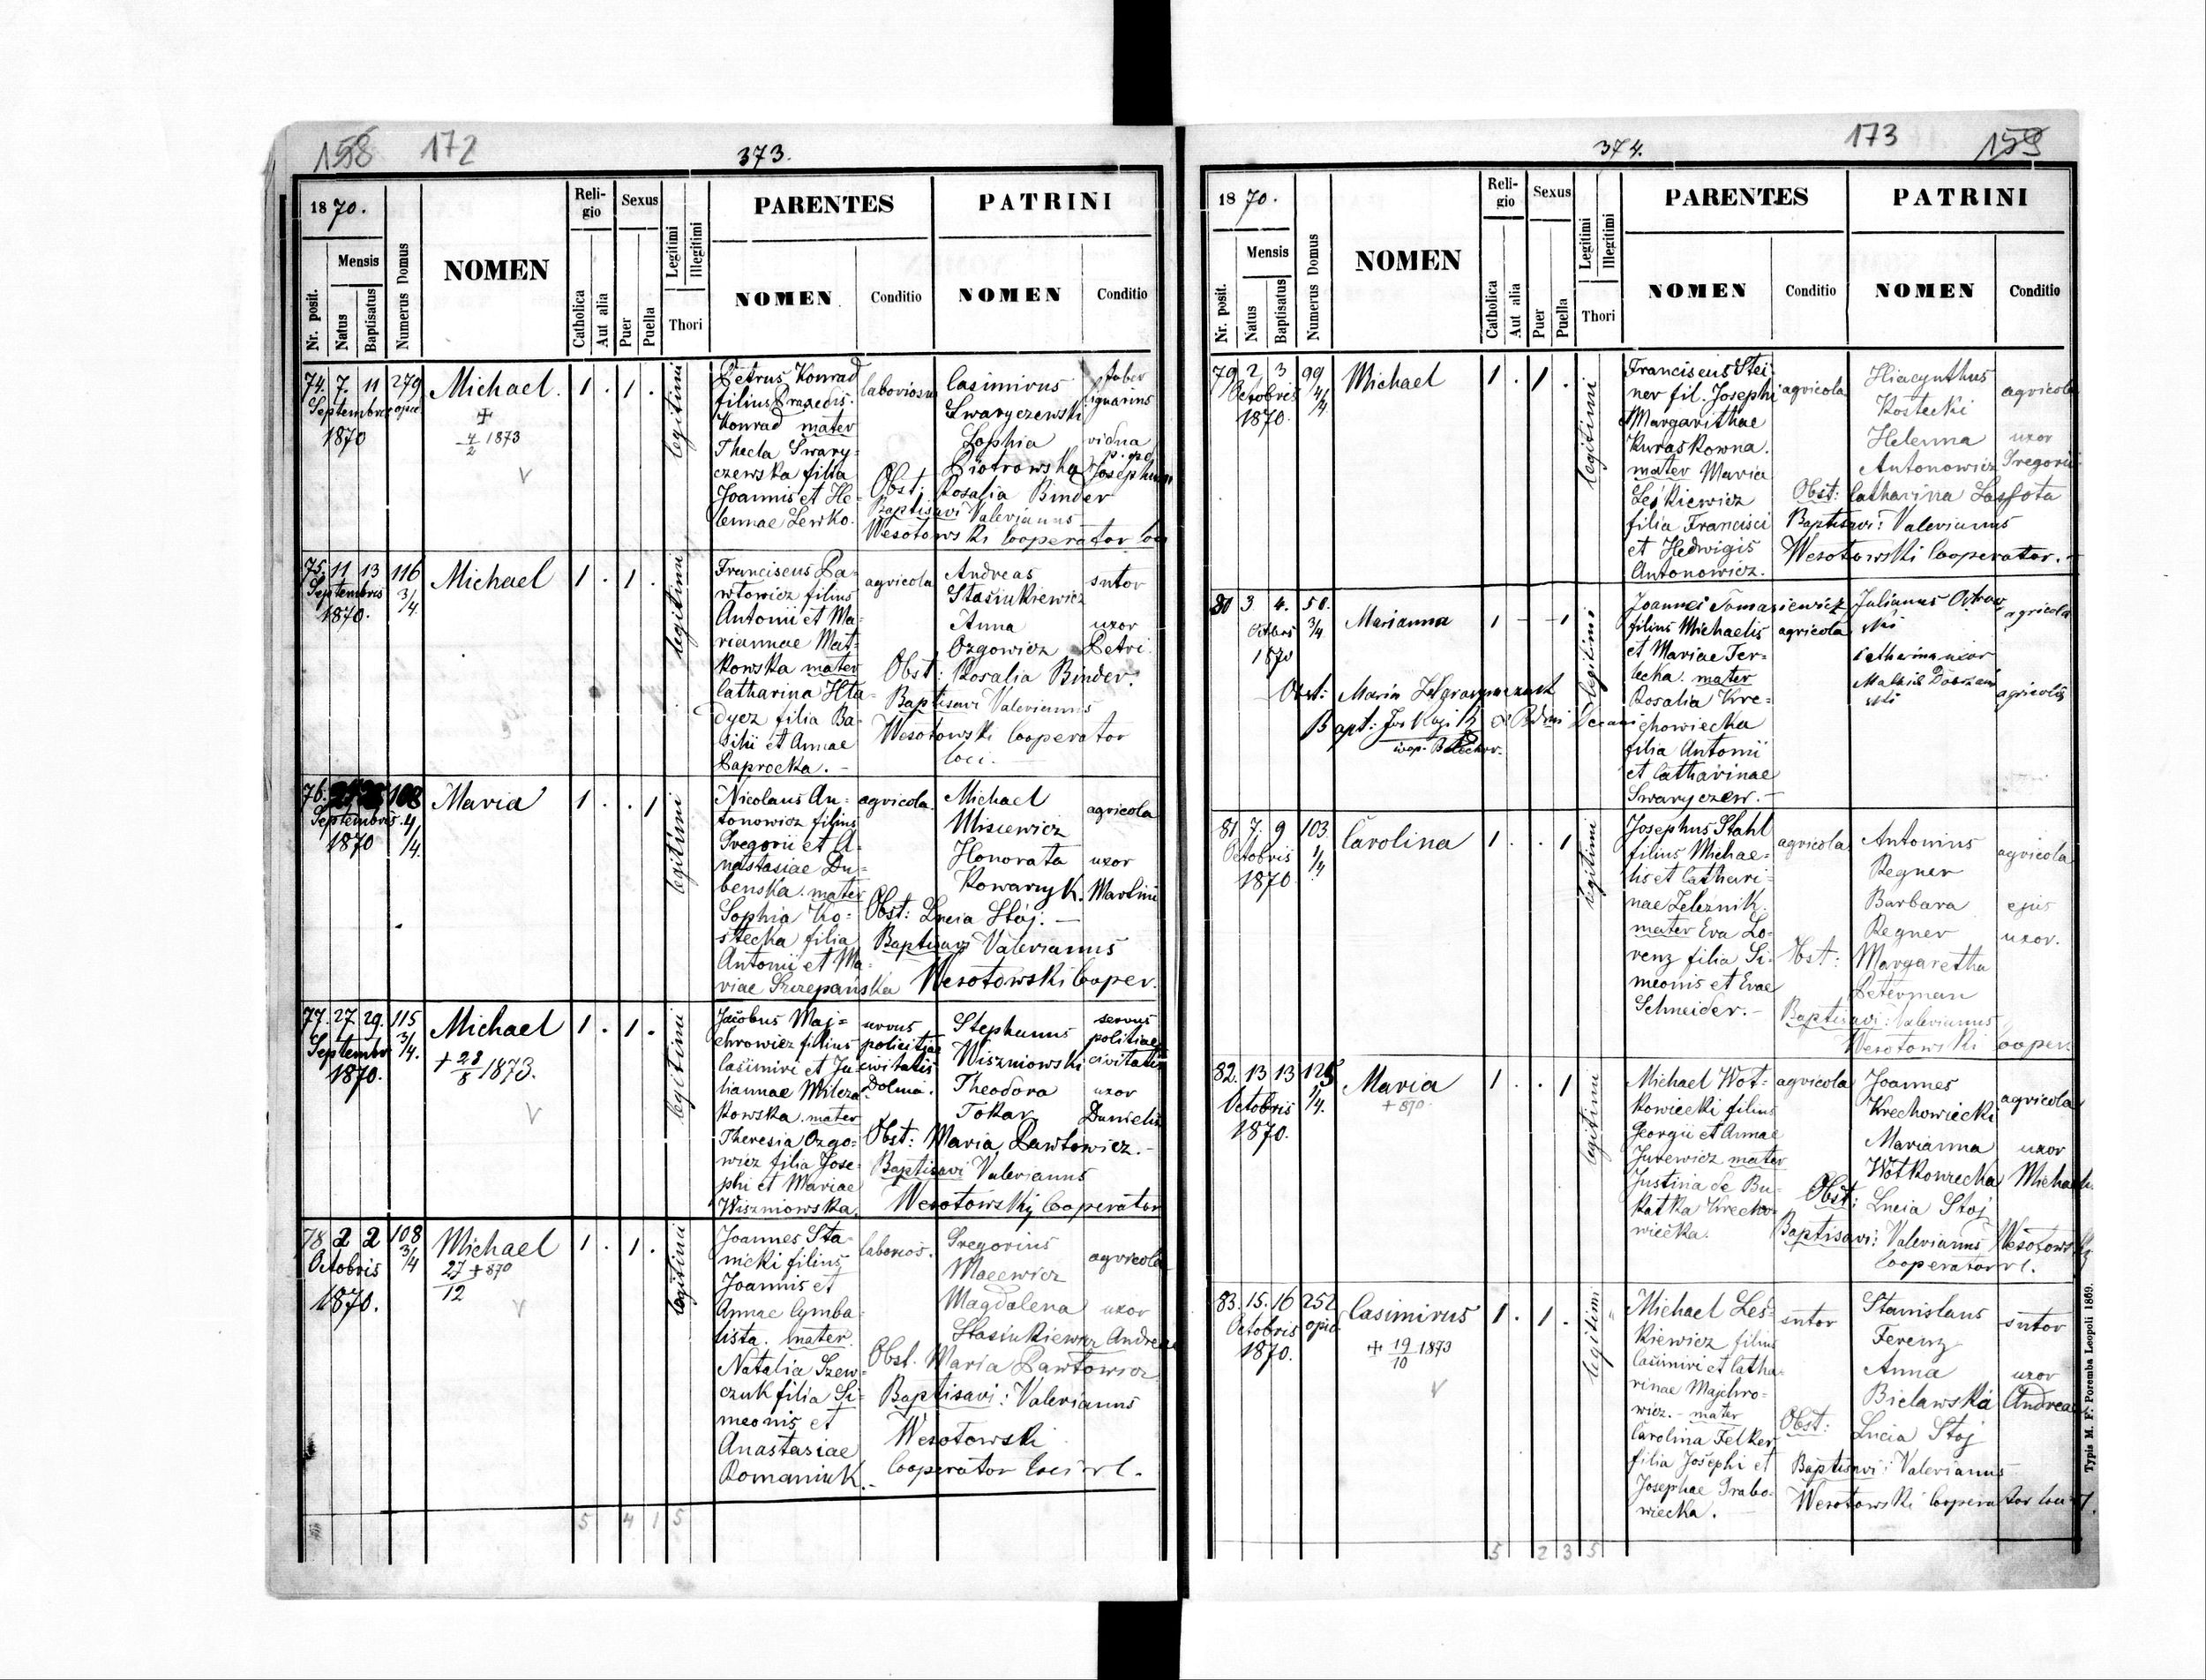 158 172 373.
1870.
Mensis
Nr. posit.
Natus
Baptisatus
Numerus Domus
NOMEN
Reli-
gio
Catholica
Aut alia
Sexus
Puer
Puella
Legitimi
Illegitimi
Thori
PARENTES
NOMEN
Conditio
PATRINI
NOMEN
Conditio
74. 7. 11 279
Septembris
1870
Michael.
+
4/2 1873
1 . 1 .
legitimi
Petrus Konrad
filius Praxedis
Konrad mater
Thecla Swary-
czewska filia
Joannis et He-
lennae Lewko.
Casimirus
Swaryczewski
Sophia
Piotrowska
faber
lignarius
vidua
p. qd.
Josephum
Obst: Rosalia Binder
Baptisavi Valerianus
Wesołowski Cooperator loci
75. 11 13 116
Septembris 3/4.
1870.
Michael
1 . 1 .
legitimi
Franciscus Pa-
włowicz filius
Antonii et Ma-
riannae Mat-
kowska mater
Catharina Hła-
dycz filia Ba-
silii et Annae
Paprocka. -
agricola
Andreas
Stasiukiewicz
Anna
Ozgowicz
sutor
uxor
Petri.
Obst: Rosalia Binder.
Baptisavi Valerianus
Wesołowski Cooperator
loci. -
76. 108
Septembris 4/4.
1870
Maria
1 . . 1
legitimi
Nicolaus An-
tonowicz filius
Gregorii et A-
nastasiae Du-
benska. mater
Sophia Ko-
stecka filia
Antonii et Ma-
riae Szczepańska
agricola.
Michael
Misiewicz
Honorata
Kowarzyk.
agricola
uxor
Martini
Obst: Lucia Stój. -
Baptisavi Valerianus
Wesołowski Cooper.
77. 27. 29. 115
Septembr 3/4.
1870.
Michael
+ 28/8 1873.
1 . 1 .
legitimi
Jacobus Maj-
chrowicz filius
Casimiri et Ju-
liannae Milcza
kowska. mater
Theresia Ozgo-
wicz filia Jose-
phi et Mariae
Wiszniowska.
servus
policitiae
civitatis
Dolina.
Stephanus
Wiszniowski
Theodora
Tokar
servus
politiae
civitatis
uxor
Danielis
Obst: Maria Pawłowicz. -
Baptisavi Valerianus
Wesołowski Cooperator
78 2 2 108
Octobris 3/4
1870.
Michael
27/12 + 870
1 . 1 .
legitimi
Joannes Sta-
nicki filius
Joannis et
Annae Cymba-
lista. mater
Natalia Szew-
czuk filia Si-
meonis et
Anastasiae
Romaniuk. -
laborios.
Gregorius
Macewicz
Magdalena
Stasiukiewicz
agricola
uxor
Andreae
Obst. Maria Pawłowicz
Baptisavi: Valerianus
Wesołowski
Cooperator loci r l.
5 4 1 5
374. 173 159
1870.
Mensis
Nr. posit.
Natus
Baptisatus
Numerus Domus
NOMEN
Reli-
gio
Catholica
Aut alia
Sexus
Puer
Puella
Legitimi
Illegitimi
Thori
PARENTES
NOMEN
Conditio
PATRINI
NOMEN
Conditio
79 2 3 99
Octobris 4/4
1870.
Michael
1 . 1 .
legitimi
Franciscus Stei-
ner fil. Josephi
Margarithae
Kuraskowna.
mater Maria
Leśkiewicz
filia Francisci
et Hedwigis
Antonowicz.
agricola
Hiacynthus
Kostecki
Helenna
Antonowicz
agricola
uxor
Gregorii
Obst: Catharina Lassota
Baptisavi: Valerianus
Wesołowski Cooperator. -
80 3 4. 50.
Octobris 3/4
1870
Marianna
1 - - 1
legitimi
Joannes Tomasiewicz
filius Michaelis
et Mariae Ter-
lecka. mater
Rosalia Kre-
chowiecka
filia Antonii
et Catharinae
Swaryczew. -
agricola
Julianus Ostrow
ski
Catharina uxor
agricola
agricola
Obst: Maria
Bapt:
81 7. 9 103
Octobris 1/4
1870
Carolina
1 . . 1
legitimi
Josephus Stahl
filius Michae-
lis et Cathari-
nae Zeleznik.
mater Eva Lo-
renz filia Si-
meonis et Evae
Schneider. -
agricola
Antonius
Regner
Barbara
Regner
agricola
ejus
uxor.
Obst: Margaretha
Peterman
Baptisavi: Valerianus
Wesołowski Cooper.
82. 13 13 125
Octobris 1/4.
1870.
Maria
+ 870.
1 . . 1
legitimi
Michael Woł-
kowiecki filius
Georgii et Annae
Jurewicz mater
Justina de Bu-
katka Krecho-
wiecka.
agricola
Joannes
Krechowiecki
Marianna
Wołkowiecka
agricola
uxor
Michaelis
Obst: Lucia Stój
Baptisavi: Valerianus Wesołowski
Cooperator r l.
83. 15. 16 252
Octobris opid.
1870.
Casimirus
+ 19/10 1873
1 . 1 .
legitimi
Michael Leś-
kiewicz filius
Casimiri et Catha-
rinae Majchro-
wicz. - mater
Carolina Felker
filia Josephi et
Josephae Grabo-
wiecka.
sutor
Stanislaus
Ferenz
Anna
Bielawska
sutor
uxor
Andreae
Obst: Lucia Stój
Baptisavi: Valerianus
Wesołowski Cooperator loci
5 2 3 5
Typis M. F. Poremba Leopoli 1869.